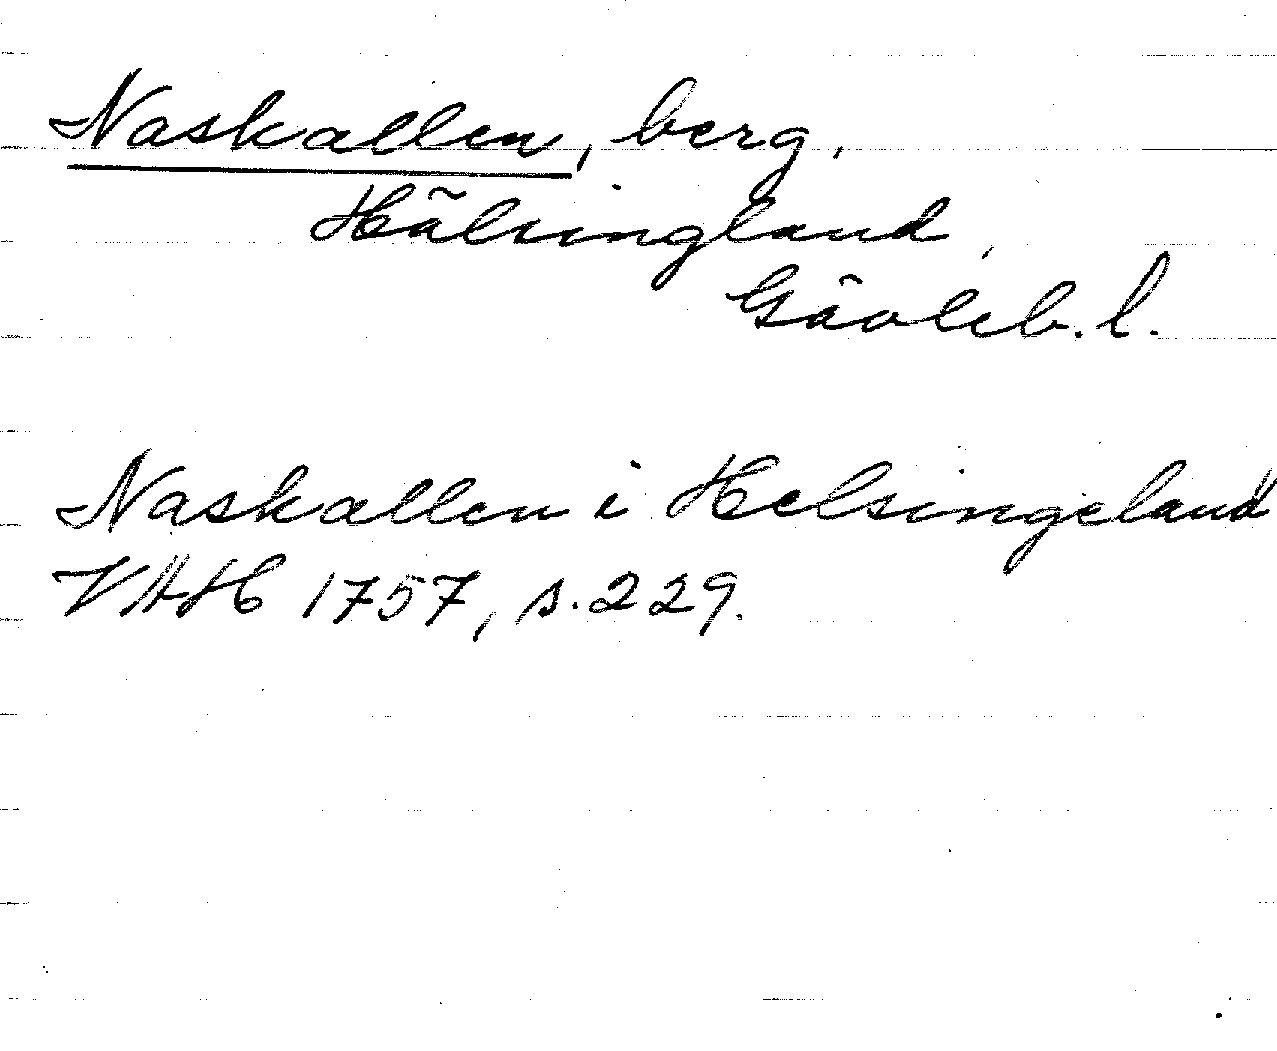 Naskallen, berg,
Hälsingland,
Gävleb. l.
Naskallen i Helsingeland
VAH 1757, s. 229.